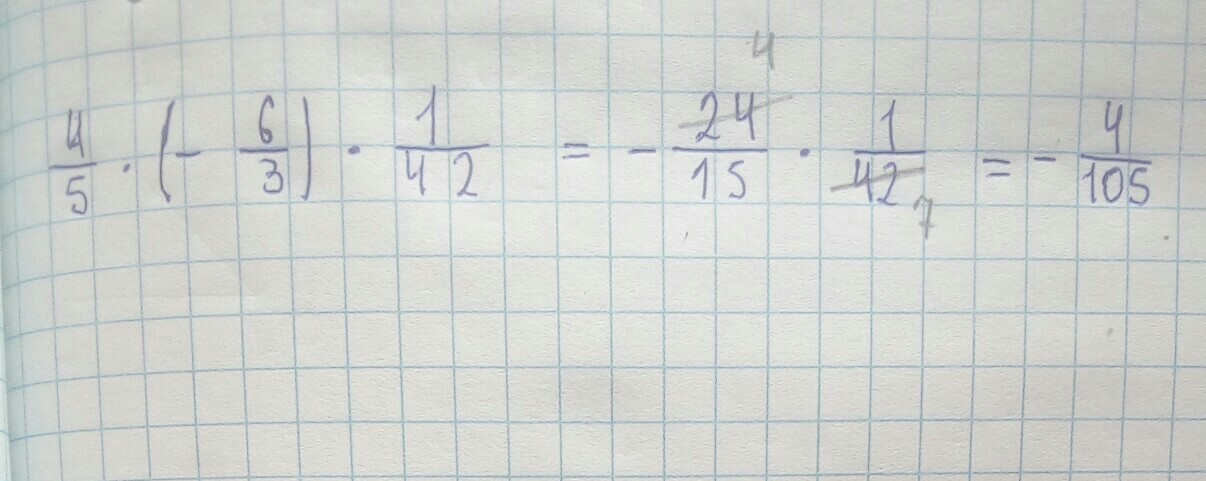 4/5 · (- 6/3) · 1/42 = - 24/15 · 1/42 = - 4/105
4
7